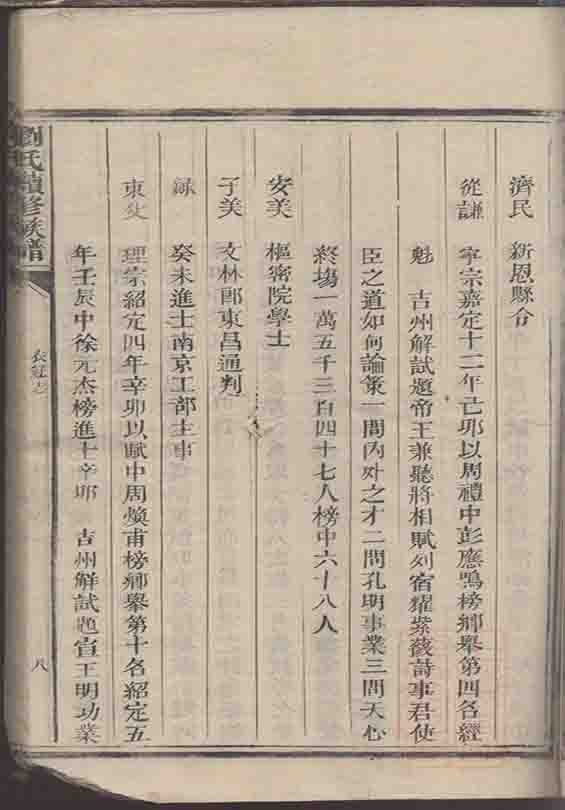 濟民 新恩縣令
從謙 寧宗嘉定十二年己卯以周禮中彭應鶚榜鄉舉第四名經
魁 吉州解試題帝王兼聽將相賦列宿耀紫薇詩事君使
臣之道如何論策一問內外之才二問孔明事業三問天心
終塲一萬五千三百四十七人榜中六十八人
安美 樞密院學士
子美 文林郎東昌通判
禄 癸未進士南京工部主事
東父 理宗紹定四年辛卯以賦中周煥甫榜鄉舉第十名紹定五
年壬辰中徐元杰榜進士辛卯 吉州解試題宣王明功業
劉氏續修族譜
衣冠志
八